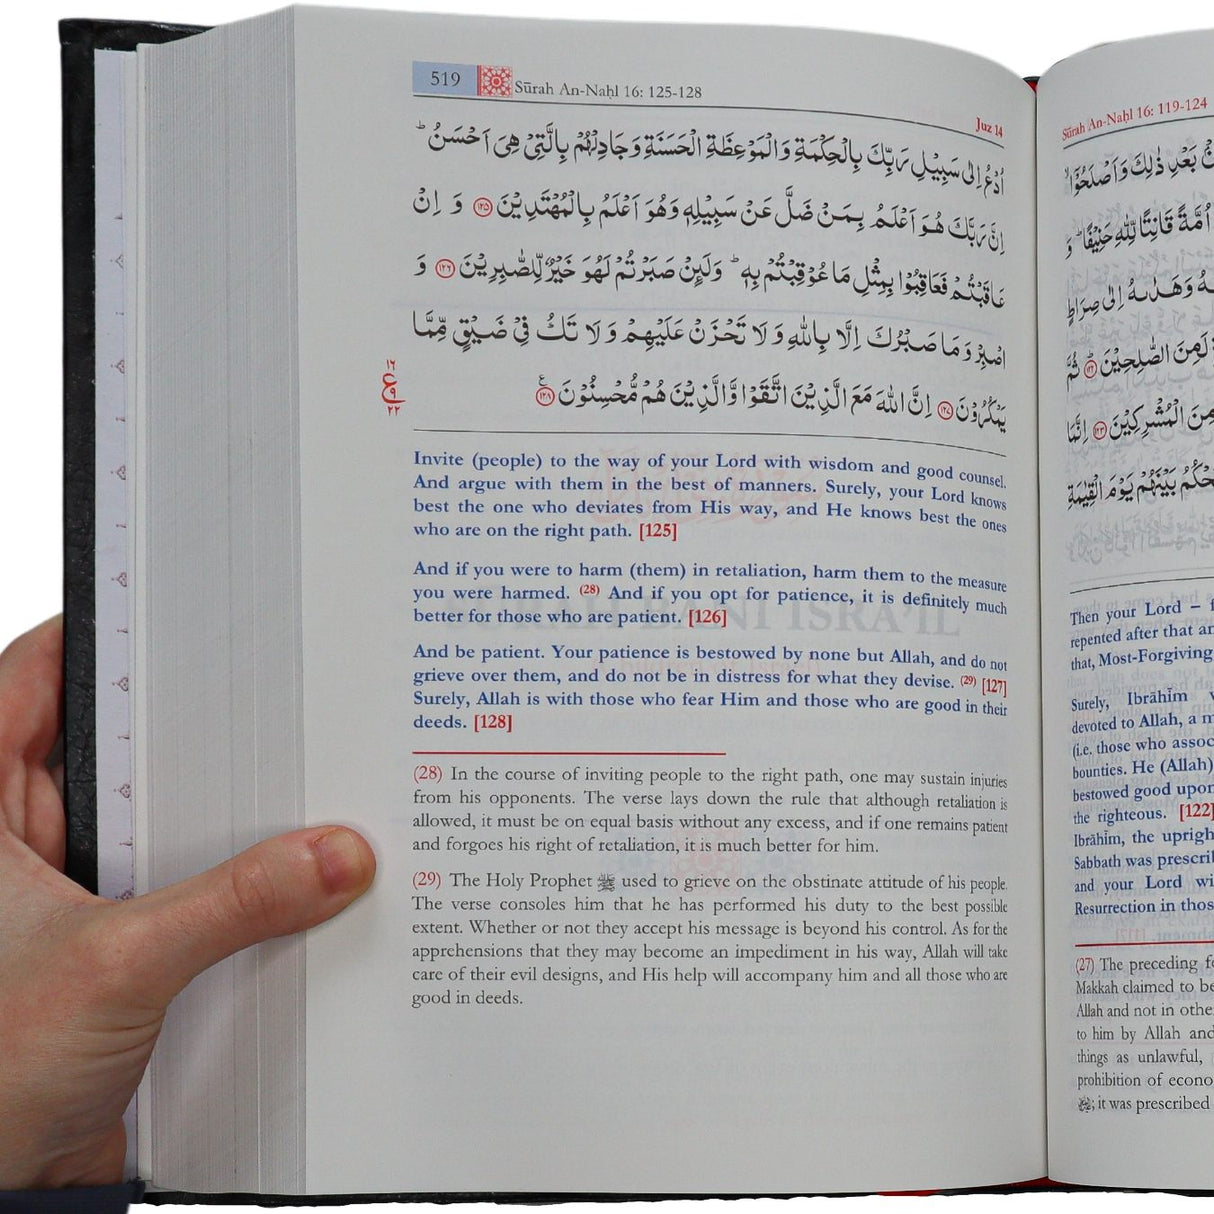 519
Sūrah An-Naḥl 16: 125-128
Juz 14
اُدْعُ اِلٰى سَبِيْلِ رَبِّكَ بِالْحِكْمَةِ وَالْمَوْعِظَةِ الْحَسَنَةِ وَجَادِلْهُمْ بِالَّتِيْ هِيَ اَحْسَنُ ؕ
اِنَّ رَبَّكَ هُوَ اَعْلَمُ بِمَنْ ضَلَّ عَنْ سَبِيْلِهٖ وَهُوَ اَعْلَمُ بِالْمُهْتَدِيْنَ ﴿۱۲۵﴾ وَ اِنْ
عَاقَبْتُمْ فَعَاقِبُوْا بِمِثْلِ مَا عُوْقِبْتُمْ بِهٖ ؕ وَلَئِنْ صَبَرْتُمْ لَهُوَ خَيْرٌ لِّلصّٰبِرِيْنَ ﴿۱۲۶﴾ وَ
اصْبِرْ وَمَا صَبْرُكَ اِلَّا بِاللّٰهِ وَلَا تَحْزَنْ عَلَيْهِمْ وَلَا تَكُ فِيْ ضَيْقٍ مِّمَّا
يَمْكُرُوْنَ ﴿۱۲۷﴾ اِنَّ اللّٰهَ مَعَ الَّذِيْنَ اتَّقَوْا وَّالَّذِيْنَ هُمْ مُّحْسِنُوْنَ ﴿۱۲۸﴾
۱۶
ع
۹
۲۲
Invite (people) to the way of your Lord with wisdom and good counsel.
And argue with them in the best of manners. Surely, your Lord knows
best the one who deviates from His way, and He knows best the ones
who are on the right path. [125]
And if you were to harm (them) in retaliation, harm them to the measure
you were harmed. (28) And if you opt for patience, it is definitely much
better for those who are patient. [126]
And be patient. Your patience is bestowed by none but Allah, and do not
grieve over them, and do not be in distress for what they devise. (29) [127]
Surely, Allah is with those who fear Him and those who are good in their
deeds. [128]
(28) In the course of inviting people to the right path, one may sustain injuries
from his opponents. The verse lays down the rule that although retaliation is
allowed, it must be on equal basis without any excess, and if one remains patient
and forgoes his right of retaliation, it is much better for him.
(29) The Holy Prophet ﷺ used to grieve on the obstinate attitude of his people.
The verse consoles him that he has performed his duty to the best possible
extent. Whether or not they accept his message is beyond his control. As for the
apprehensions that they may become an impediment in his way, Allah will take
care of their evil designs, and His help will accompany him and all those who are
good in deeds.
Sūrah An-Naḥl 16: 119-124
بَعْدِ ذٰلِكَ وَاَصْلَحُوْۤا
اُمَّةً قَانِتًا لِّلّٰهِ حَنِيْفًا ؕ وَ
وَهَدٰىهُ اِلٰى صِرَاطٍ
لَمِنَ الصّٰلِحِيْنَ ﴿۱۲۲﴾ ثُمَّ
مِنَ الْمُشْرِكِيْنَ ﴿۱۲۳﴾ اِنَّمَا
بَيْنَهُمْ يَوْمَ الْقِيٰمَةِ
Then your Lord –
repented after that
that, Most-Forgiving
Surely, Ibrāhīm
devoted to Allah, a
(i.e. those who
bounties. He (Allah)
bestowed good
the righteous. [122]
Ibrāhīm, the
Sabbath was
and your Lord
Resurrection in
(27) The preceding
Makkah claimed to
Allah and not in
to him by Allah and
things as unlawful,
prohibition of
ﷺ; it was prescribed